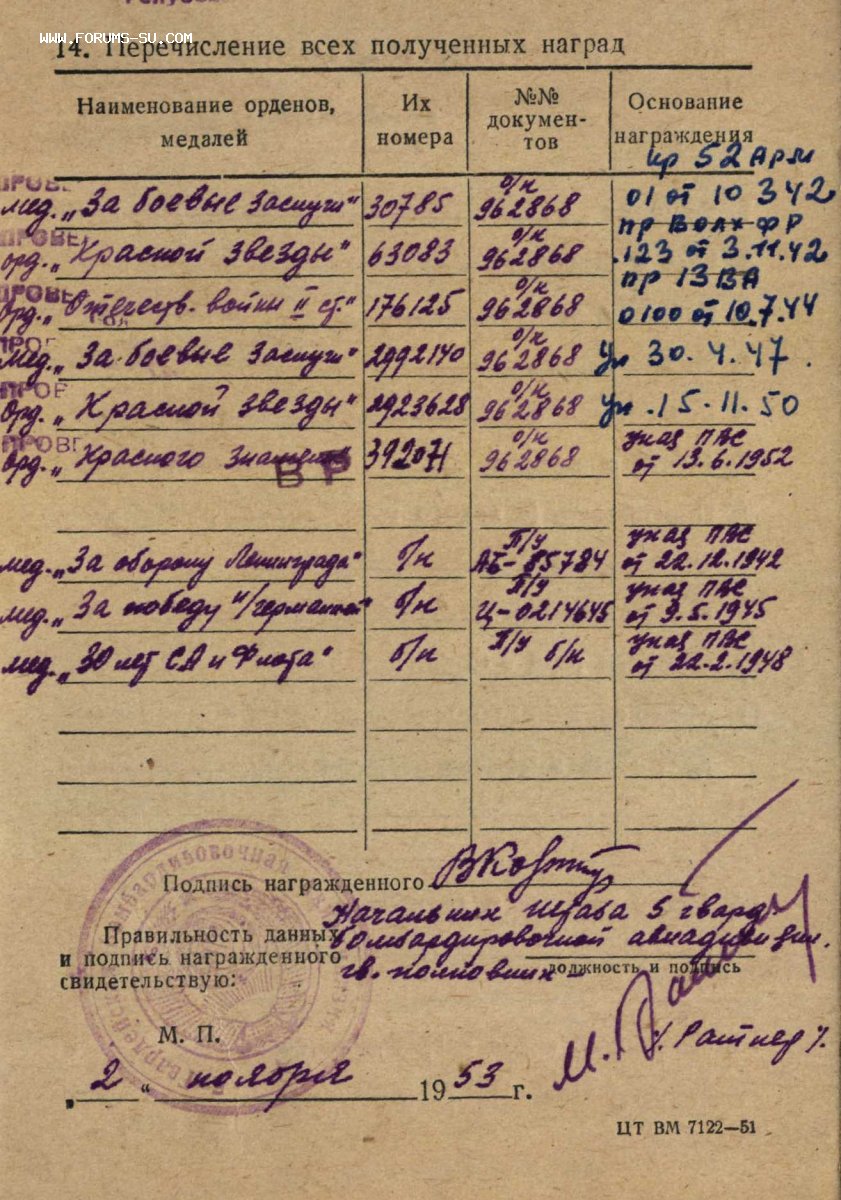 www.forums-su.com
14. Перечисление всех полученных наград
Наименование орденов, медалей
Их номера
№№ докумен-тов
Основание награждения
пр 52 Арм
мед. „За боевые заслуги" 30785 о/к 962868 01 от 10 3 42
пр Волх ФР
орд. „Красной звезды" 63083 о/к 962868 .123 от 3.11.42
пр 13 ВА
орд. „Отечеств. войны II ст." 176125 о/к 962868 0100 от 10.7.44
мед. „За боевые заслуги" 2992140 о/к 962868 Ук 30.4.47.
орд. „Красной звезды" 2923628 о/к 962868 Ук .15.11.50
орд. „Красного знамени" 392071 о/к 962868 указ ПВС от 13.6.1952
ВР
мед. „За оборону Ленинграда" б/н п/у АБ-85784 указ ПВС от 22.12.1942
мед. „За победу н/германией" б/н п/у Ц-0214645 указ ПВС от 9.5.1945
мед. „30 лет СА и Флота" б/н п/у б/н указ ПВС от 22.2.1948
Подпись награжденного
Начальник штаба 5 гвард.
Правильность данных бомбардировочной авиадивизии.
и подпись награжденного гв. полковник -
свидетельствую: должность и подпись
М. П. /Ратнер/.
„2" ноября 1953 г.
ЦТ ВМ 7122—51